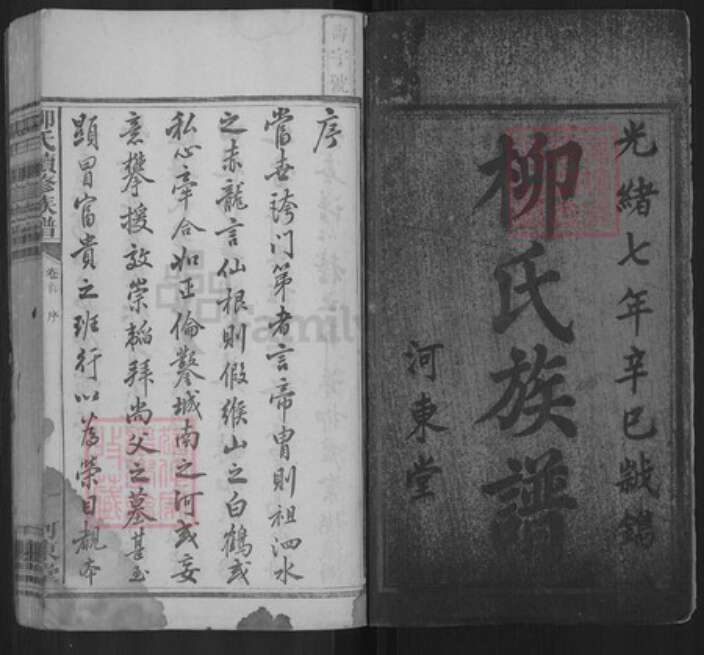 光緒七年辛巳鐫
柳氏族譜
河東堂
字號
序
嘗甚誇门第者言帝胄則祖泗水
之赤龍言仙根則假緱山之白鶴或
私心牽合如正倫鑿城南之河或妄
意攀援效崇韜拜尚父之墓甚至
顯冒富貴之班行以為榮目覩本
柳氏續修族譜
卷首 序
河東堂